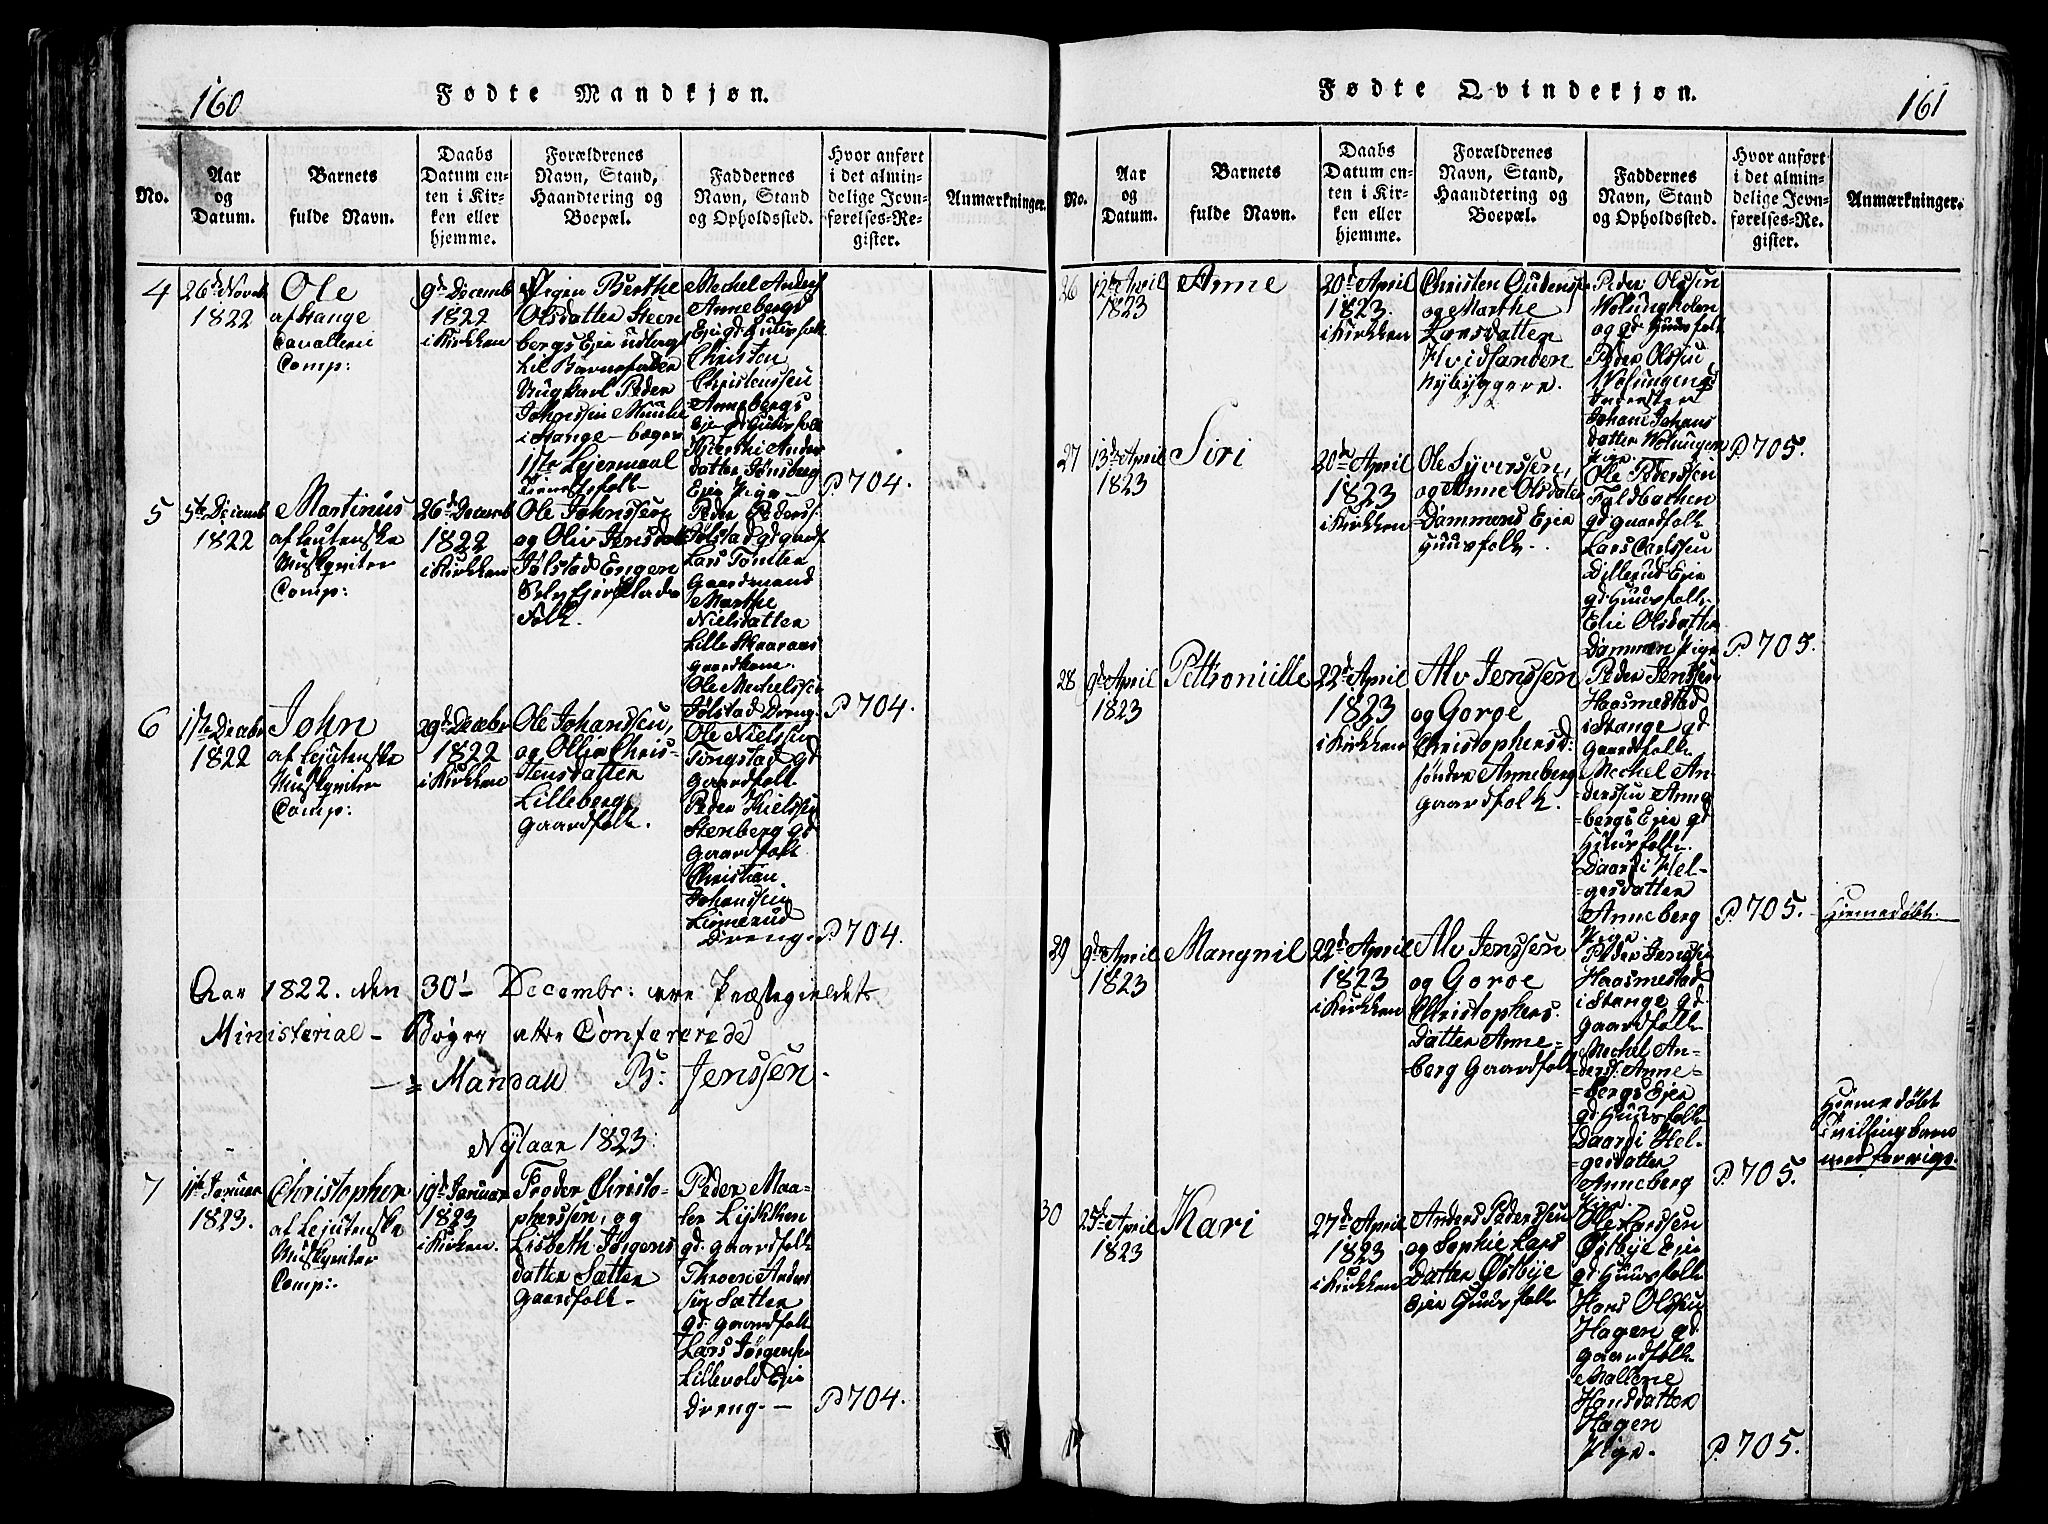 160
Fødte Mandkjøn.
No.
Aar
og
Datum.
Barnets
fulde Navn.
Daabs
Datum en-
ten i Kir-
ken eller
hjemme.
Forældrenes
Navn, Stand,
Haandtering og
Boepæl.
Faddernes
Navn, Stand
og Opholdssted.
Hvor anført
i det almin-
delige Jevn-
førelses-Re-
gister.
Anmærkninger.
4
26d Novb
1822
Ole
af Stange
Cavalleri
Comp:
9d Decemb
1822
i Kirken
Pigen Berthe
Olsdatter Steen
bergs Eje udlagt
til Barnefader
Ungkarl Peder
Johnssen
i Stange - begges
1ste Lejermaal
Mechel Anders
Annebergs
Eje gd Huusfolk
Christen
Christenssen
Annebergs
Eje gd Huusfolk
Anders
datter Tønsberg
Eje Pige -
P. 704.
5
5te Decemb
1822
Martinus
af Leutenske
Musqviter
Comp:
26d Decemb
1822
i Kirken
Ole Johnssen
og Oliv Jensdatt
Jølstad Engen
Selvejer Plads
Folk.
Peder Pederss:
Jølstad gd gaardf
Lars Tomter
Gaardmand
Marthe
Nielsdatter
Lille Skaaraas
gaardkone.
Ole Mechelssen
Jølstad Dreng.
P. 704.
6
1822
John
af Lejutenske
Musqviter
Comp:
29d Decebr
1822
i Kirken
Ole Johanssen,
og Ollia Chris-
tensdatter
Lilleberg
gaardfolk.
Ole Nielssen
Tongstad gd
gaardfolk
Peder Nielssen
Stenberg gd
Gaardfolk
Christian
Johanssen
Lismerud
Dreng
P. 704.
Aar 1822. den 30' Decembr: ere Præstegieldets
Ministerial - Bøger atter Confererede
Mandall B: Jenssen.
Nytaar 1823.
7
11te Januar
1823.
Christopher
af Lejutenske
Musqviter
Comp:
19d Januar
1823
i Kirken.
Froder Christo-
pherssen, og
Lisbeth Jørgens
datter Sætter
Gaardfolk -
Peder Maa-
ler Lykken
gd. gaardfolk
Throen Anders
sen Sætter
gd. gaardfolk
Lars Jørgens
Lillevold Eje
Dreng. -
P. 704.
161
Fødte Qvindekjøn.
No.
Aar
og
Datum.
Barnets
fulde Navn.
Daabs
Datum en-
ten i Kir-
ken eller
hjemme.
Forældrenes
Navn, Stand,
Haandtering og
Boepæl.
Faddernes
Navn, Stand
og Opholdssted.
Hvor anført
i det almin-
delige Jevn-
førelses-Re-
gister.
Anmærkninger.
26
12te April
1823
Anne
20d April
1823.
i Kirken
Christen Gudenss
og Marthe
Larsdatter
Hvidsanden
Nybyggere.
Peder Olssen
Wolungholen
og gd Huusfolk
Peder Olssen
Wolungen gd
Inderster
Johane Johans
datter Wolungen
Pige.
P. 705.
27
13de April
1823
Siri
20de April
1823
i Kirken
Ole Syverssen,
og Anne Olsdatter
Dammens Ejer
Huusfolk.
Ole Pederssen
Faldbachen
gd gaardfolk
Lars Carlssen
Dillerud Ejer
gd Huusfolk
Elie Olsdatter
Dammen Pige
P. 705.
28
9d April
1823
Pettronille
22d April
1823
i Kirken
Alv Jenssen
og Goroe
Christophersd:
søndre Anneberg
gaardfolk.
Peder Jenssen
Haasmestad
i Stange gd
gaardfolk
Mechel An-
derssen Anne
bergs Ejer gd
Huusfolk.
Daardi Hel-
gesdatter
Anneberg
Pige.
P. 705.
Hiemedøbt.
29
9de April
1823
Mangnil
22d April
1823
i Kirken
Alv Jenssen
og Goroe
Christophers
datter Anne-
berg Gaardfolk
Peder Jenss
Haasmestad
i Stange gd.
gaardfolk
Mechel An-
derss. Anne-
bergs Ejer
gd Huusfolk
Daardi Hel-
gesdatter
Anneberg
Pige.
P. 705.
Hiemedøbt
Tvillingbarn
med forrige.
30
25de April
1823
Kari
27d April
1823
i Kirken
Anders Pederssen
og Sophie Lars
datter Østbye
Ejer Huusfolk
Ole Larssen
Østbye Ejer
gd Huusfolk
Hans Olssen
Hagen gd
gaardfolk
Mallene
Hansdatter
Hagen
Pige.
P. 705.